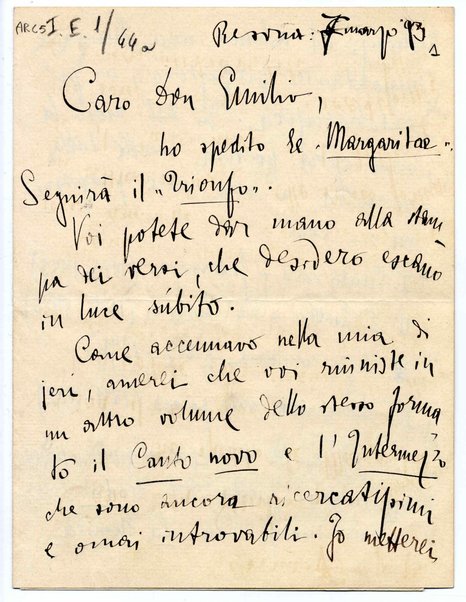 ARC5 I. E. 1/44a
Resina: 7 marzo 93
1
Caro Don Emilio,
ho spedito le "Margaritae".
Seguirà il "Trionfo".
Voi potete dar mano alla stam
pa dei versi, che desidero escano
in luce sùbito.
Come accennavo nella mia di
jeri, amerei che voi riuniste in
un altro volume dello stesso forma
to il Canto novo e l'Intermezzo
che sono ancora ricercatissimi
e omai introvabili. Io metterei